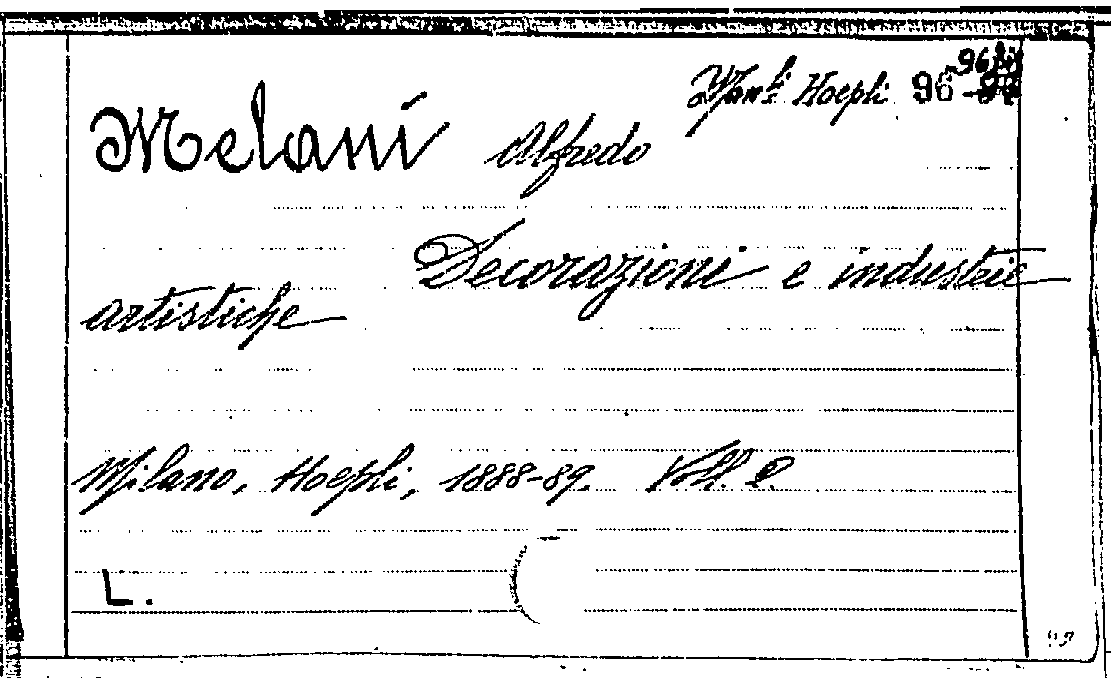 Man.li Hoepli 96 96 bis
Melani Alfredo
Decorazioni e industrie
artistiche
Milano, Hoepli, 1888-89. Voll. 2.
L.